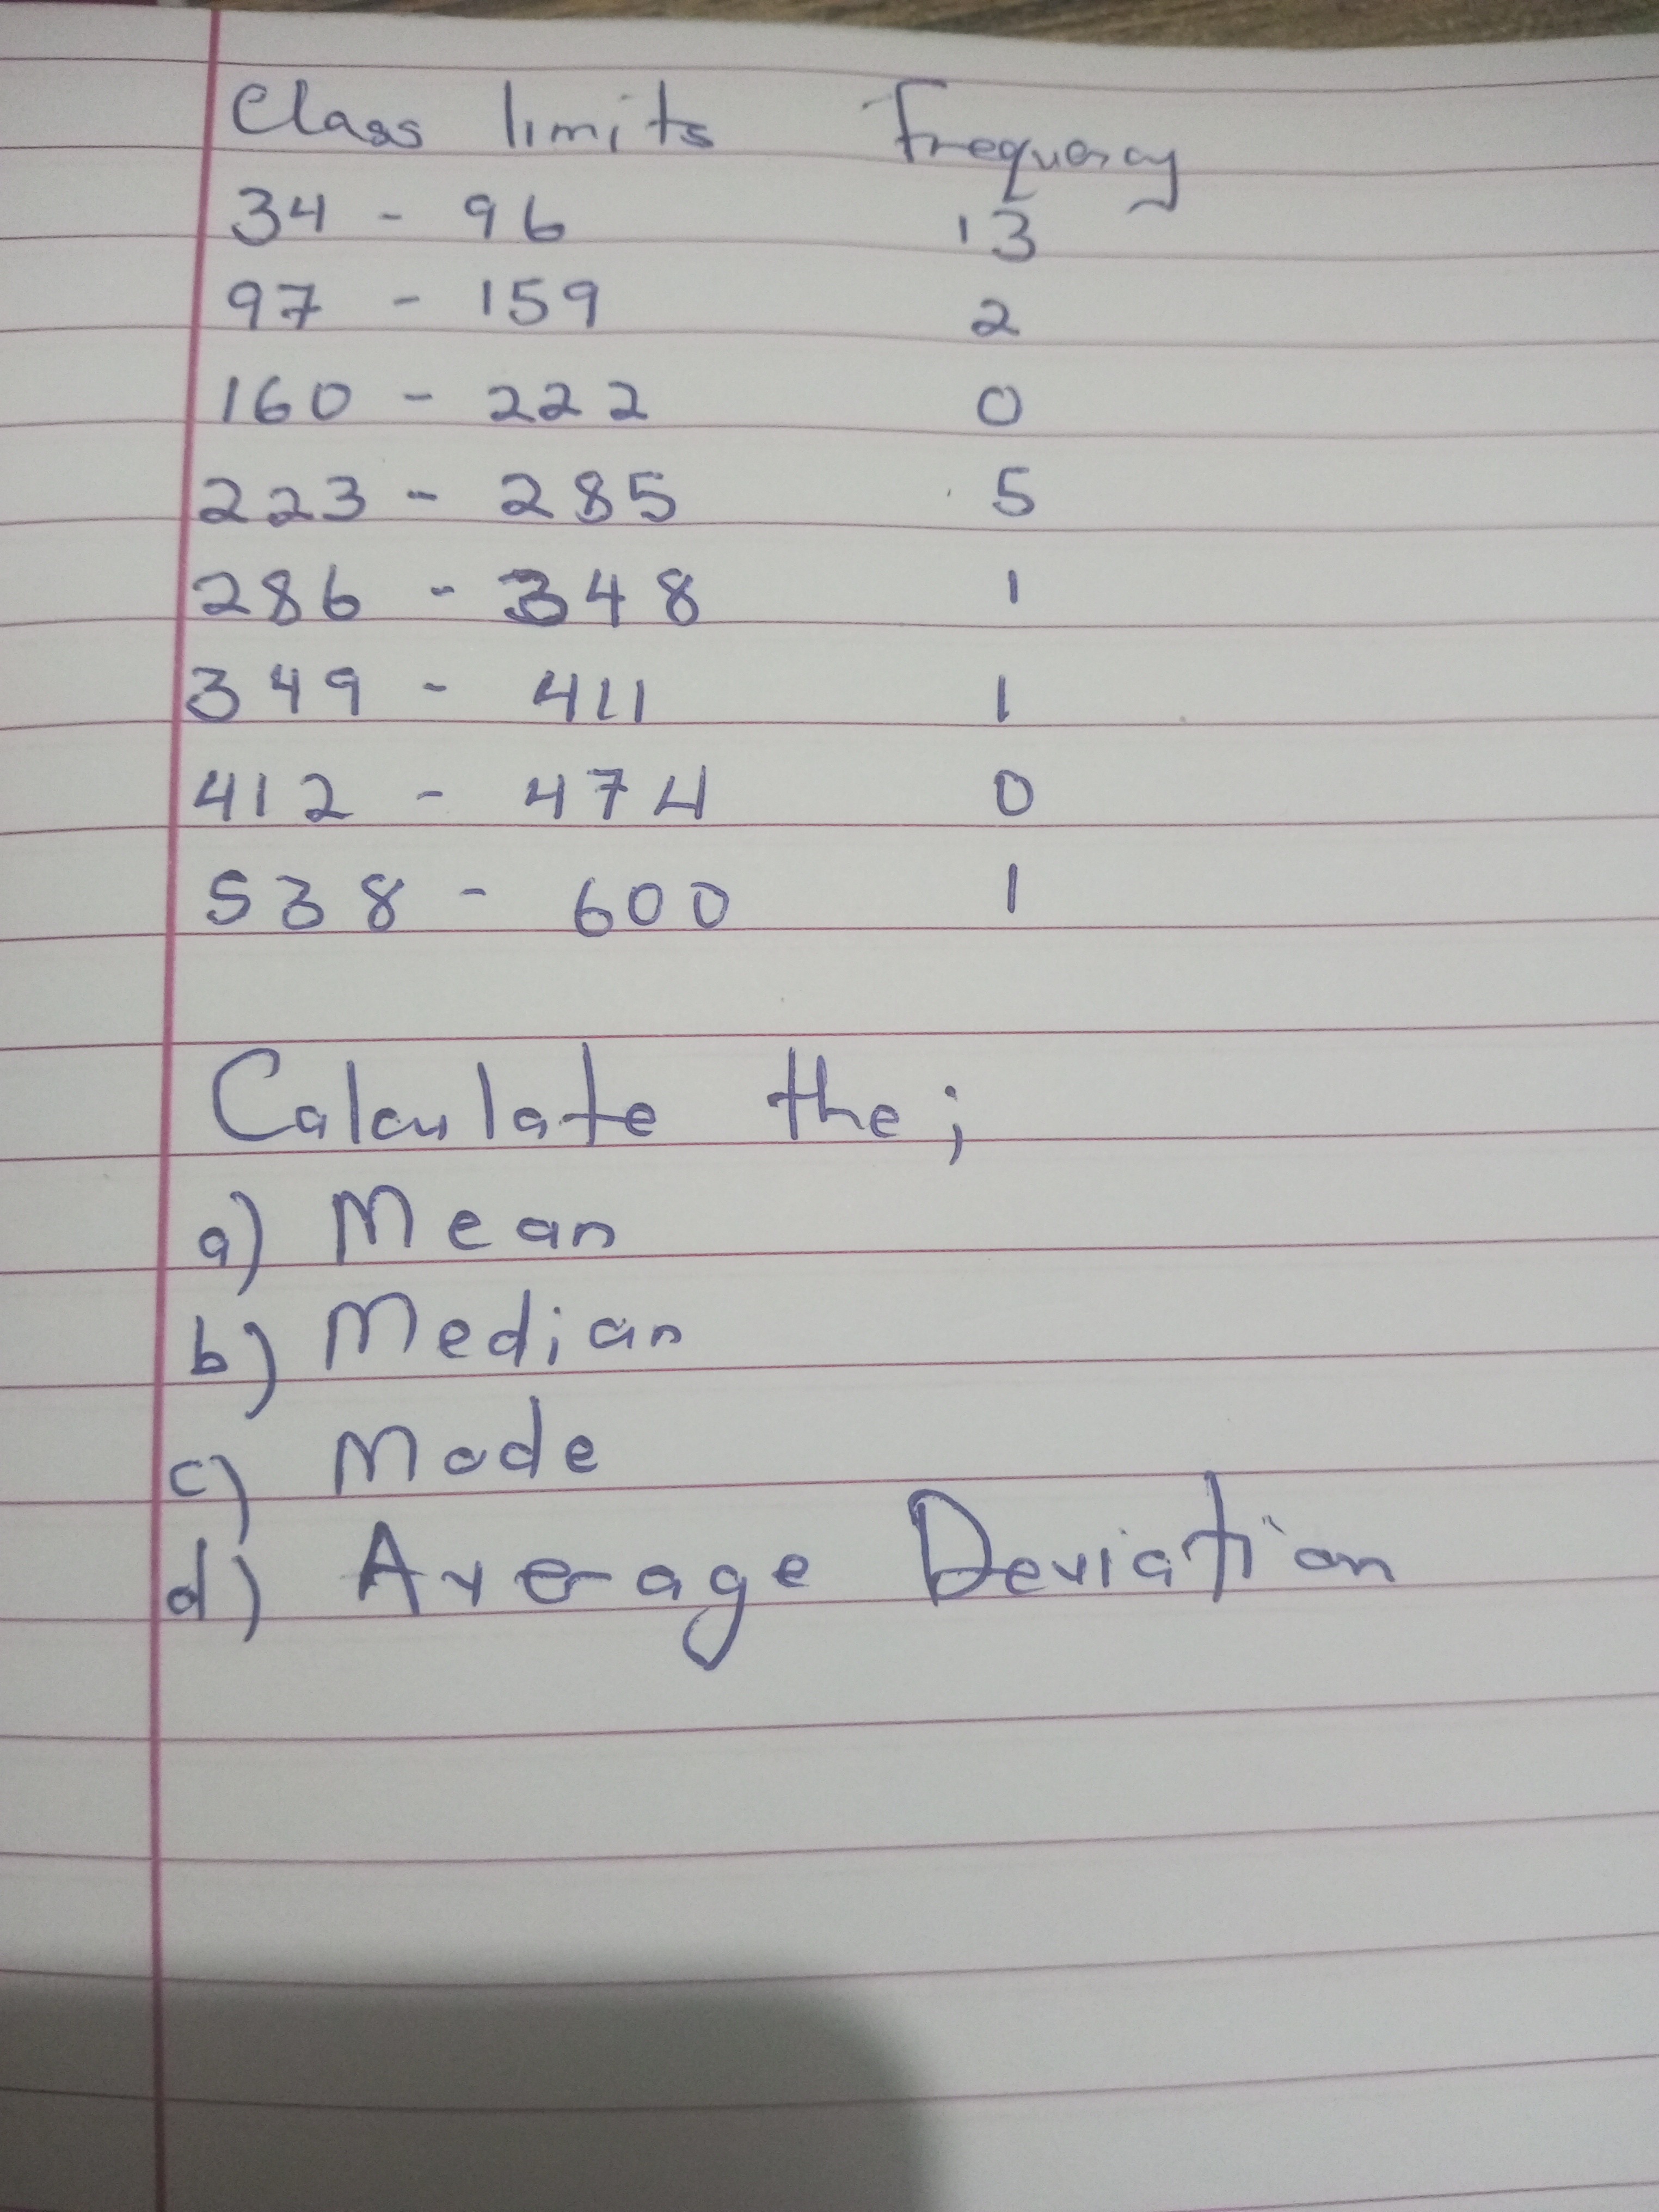 Class limits Frequency
34 - 96 13
97 - 159 2
160 - 222 0
223 - 285 5
286 - 348 1
349 - 411 1
412 - 474 0
538 - 600 1
Calculate the;
a) Mean
b) Median
c) Mode
d) Average Deviation